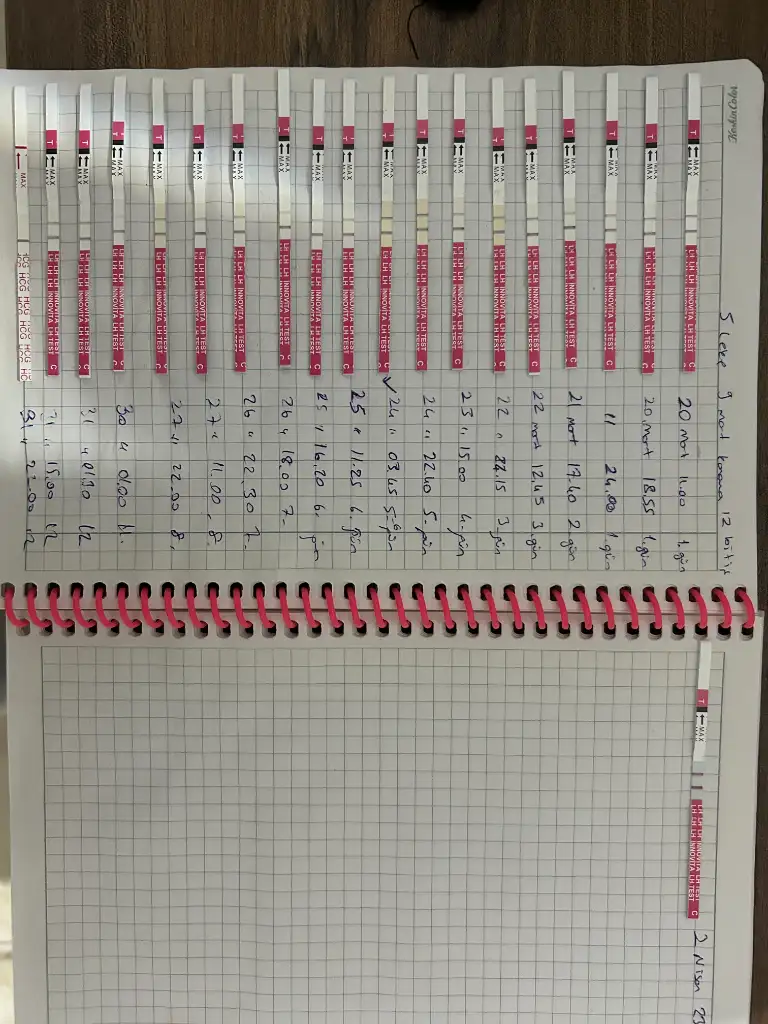 KeskinColor
5 leke 9 mart kanama 12 bitiş
20 mart 11.00 1.gün
20 mart 18.55 1.gün
11 24.00 1.gün
21 mart 17.40 2 gün
22 mart 12.45 3.gün
22 " 22.15 3.gün
23 " 15.00 4.gün
24 " 22.40 5.gün
24 " 03.45 5-6gün
25 " 11.25 6.gün
25 " 16.20 6.gün
26 " 18.00 7-
26 " 22.30 7-
27 " 11.00 8.
27 " 22.00 8.
30 " 01.00 11.
31 " 01.30 12
31 " 15.00 12
31 " 22.00 12
T MAX LH LH LH INNOVITA LH TEST C
MAX HCG HCG HCG HCG HCG
T MAX LH LH LH INNOVITA LH TEST C
2 Nisan